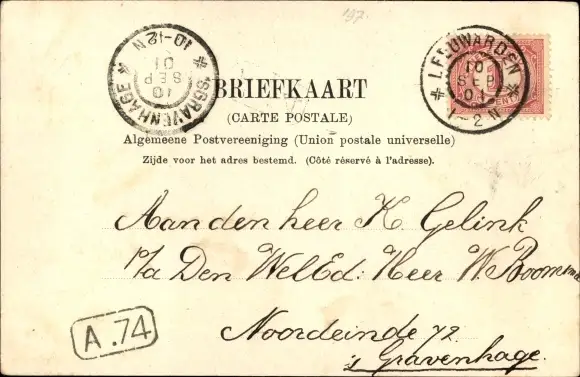 197.
LEEUWARDEN
10
SEP
01
1-2 N
'SGRAVENHAGE
10
SEP
01
10-12N
BRIEFKAART
(CARTE POSTALE)
Algemeene Postvereeniging (Union postale universelle)
Zijde voor het adres bestemd. (Côté réservé à l'adresse).
Aan den heer K. Gelink
p/a Den WelEd: Heer W.
Noordeinde 72
's Gravenhage.
A.74